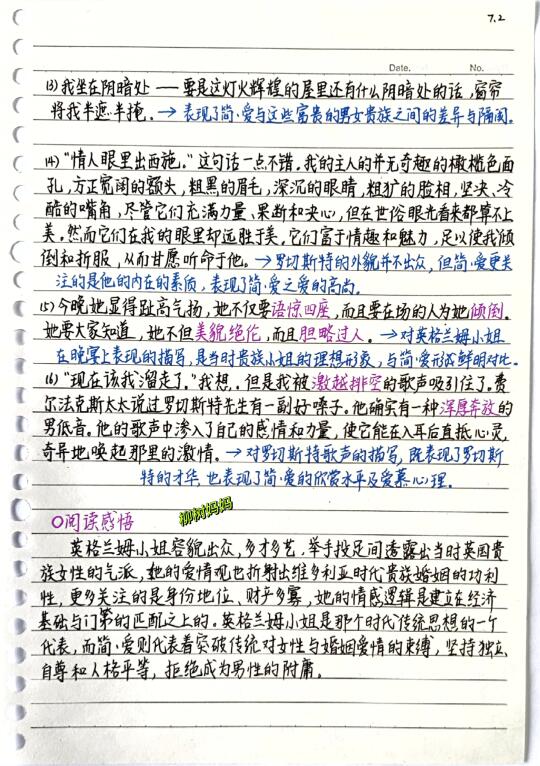 7.2
Date. No.
13) 我坐在阴暗处 —— 要是这灯火辉煌的屋里还有什么阴暗处的话,窗帘
将我半遮半掩。→ 表现了简·爱与这些富贵的男女贵族之间的差异与隔阂。
14) “情人眼里出西施。”这句话一点不错,我的主人的并无奇趣的橄榄色面
孔,方正宽阔的额头,粗黑的眉毛,深沉的眼睛,粗犷的脸相,坚决、冷
酷的嘴角,尽管它们充满力量、果断和决心,但在世俗眼光看来都算不上
美。然而它们在我的眼里却远胜于美,它们富于情趣和魅力,足以使我倾
倒和折服,从而甘愿听命于他。→ 罗切斯特的外貌并不出众,但简·爱更关
注的是他的内在的素质,表现了简·爱之爱的高尚。
15) 今晚她显得趾高气扬,她不仅要语惊四座,而且要在场的人为她倾倒。
她要大家知道,她不但美貌绝伦,而且胆略过人。→ 对英格兰姆小姐
在晚宴上表现的描写,是当时贵族小姐的理想形象,与简·爱形成鲜明对比。
16) “现在该我溜走了,”我想。但是我被激越排空的歌声吸引住了。费
尔法克斯太太说过罗切斯特先生有一副好嗓子。他确实有一种深厚奔放的
男低音。他的歌声中渗入了自己的感情和力量,使它能在入耳后直抵心灵,
奇异地唤起那里的激情。→ 对罗切斯特歌声的描写,既表现了罗切斯
特的才华,也表现了简·爱的欣赏水平及爱慕心理。
柳树妈妈
○阅读感悟
英格兰姆小姐容貌出众,多才多艺,举手投足间透露出当时英国贵
族女性的气派,她的爱情观也折射出维多利亚时代贵族婚姻的功利
性,更多关注的是身份地位、财产多寡,她的情感逻辑是建立在经济
基础与门第的匹配之上的。英格兰姆小姐是那个时代传统思想的一个
代表,而简·爱则代表着突破传统对女性与婚姻爱情的束缚,坚持独立
自尊和人格平等,拒绝成为男性的附庸。